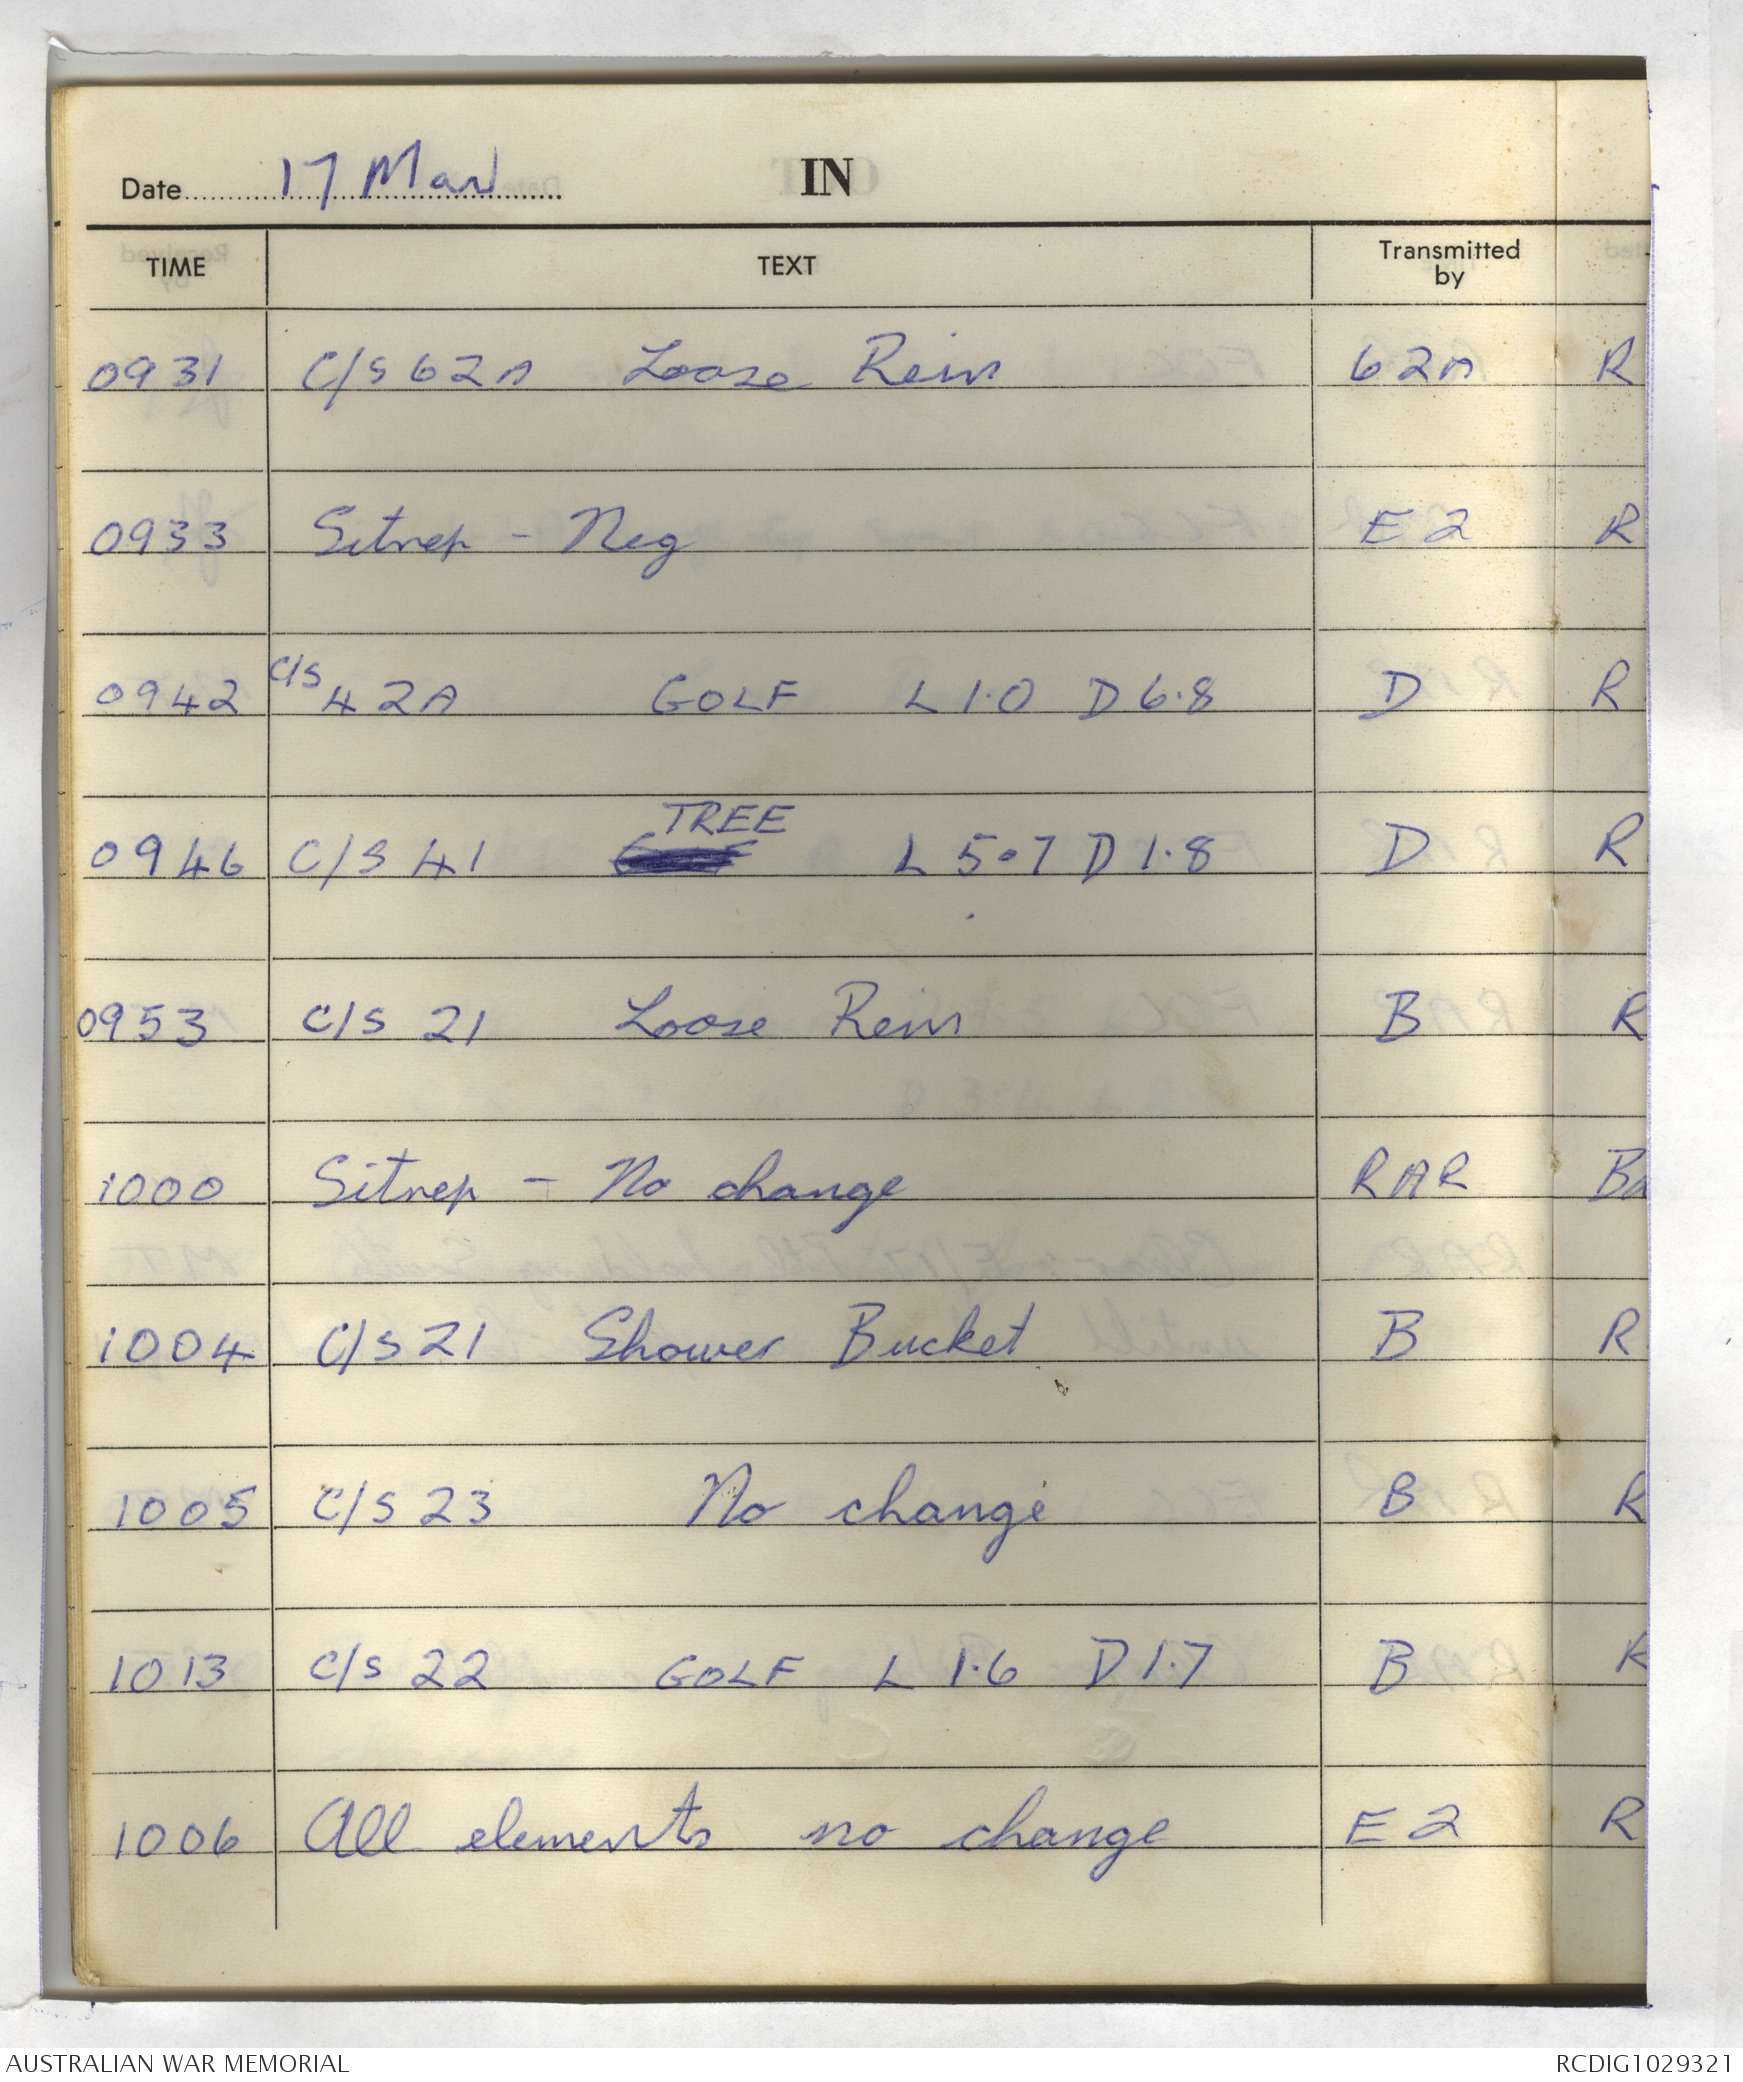 Date 17 Mar IN
TIME TEXT Transmitted by
0931 C/S 62A Loose Rein 62A R
0933 Sitrep - Neg E2 R
0942 C/S 42A GOLF L 1.0 D 6.8 D R
TREE
0946 C/S 41 L 5.7 D 1.8 D R
0953 C/S 21 Loose Rein B R
1000 Sitrep - No change RAR Ba
1004 C/S 21 Shower Bucket B R
1005 C/S 23 No change B R
1013 C/S 22 GOLF L 1.6 D 1.7 B R
1006 All elements no change E2 R
AUSTRALIAN WAR MEMORIAL RCDIG1029321